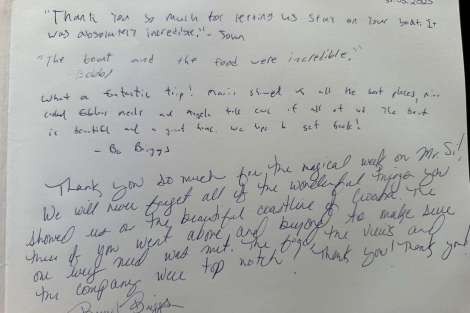 31.05.2025
"Thank you so much for letting us stay on your boat. It
was absolutely incredible." - Sown
"The boat and the food were incredible."
- Bobby
What a fantastic trip! showed us all the best places,
cooked fabulous meals and took care of all of us. The boat
is beautiful and a great time. We hope to get back!
- Briggs
Thank you so much for the magical week on Mr. Si!
We will never forget all of the wonderful things you
showed us or the beautiful coastline of Croatia. The
three of you went above and beyond to make sure
our every need was met. The food, the views and
the company were top notch! Thank you! Thank you!
Briggs